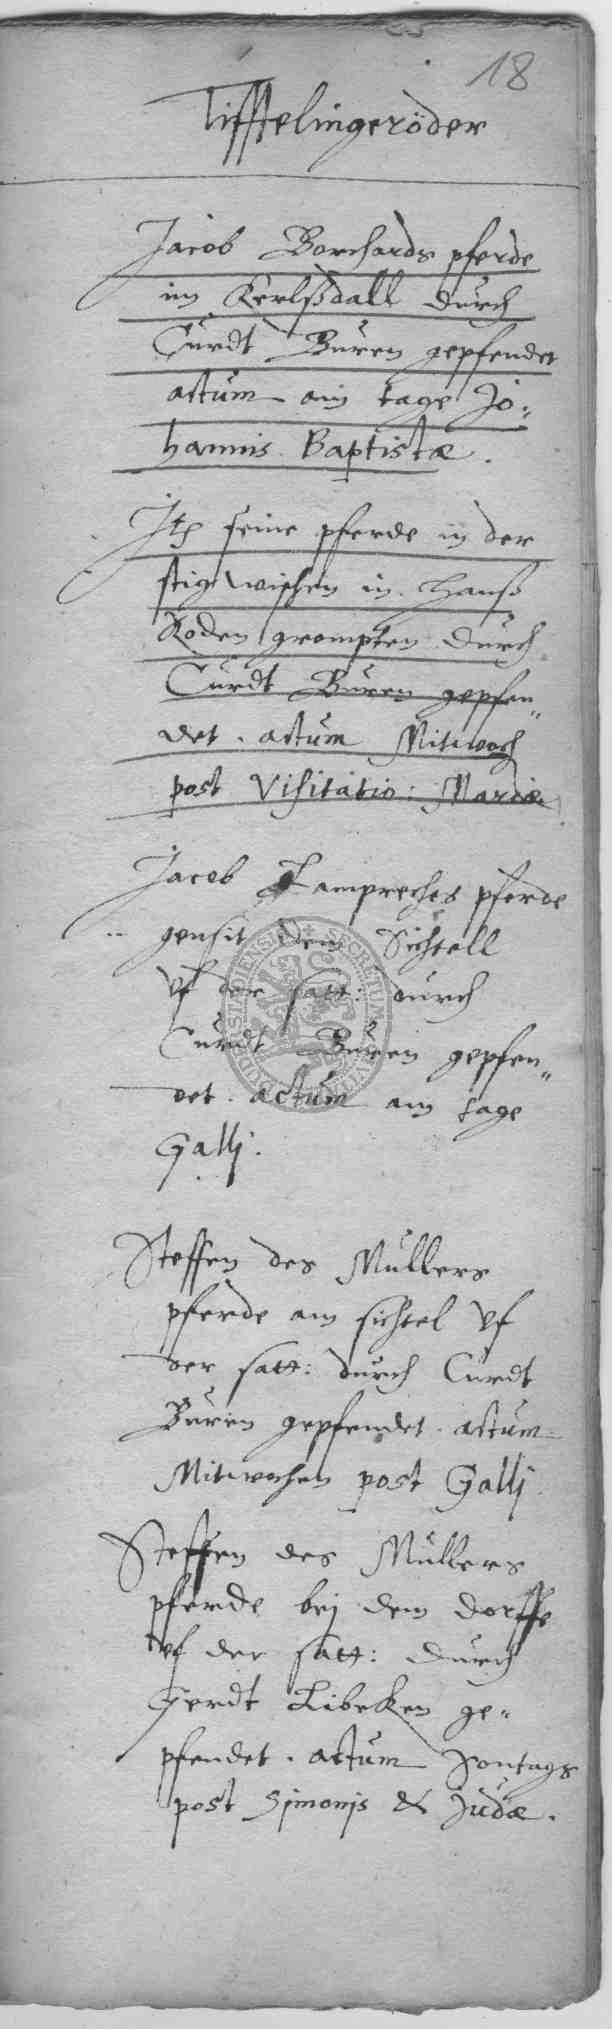 18
Tifftelingeröder
Jacob Borchards pferde
im Kerlßdall durch
Curdt Buren gepfendet
actum am tage Jo-
hannis Baptistæ.
Itē seine pferde in der
wischen in Hanß
Koden grompten durch
Curdt Buren gepfen-
det. actum Mitwoch
post Visitatio: Mariæ.
Jacob Lampreches pferde
gensit dem Sichtell
vf der satt: durch
Curdt Buren gepfen-
det. actum am tage
Gallj.
Steffen des Mullers
pferde am sichtel vf
der satt: durch Curdt
Buren gepfendet. actum
Mitwochen post Gallj
Steffen des Mullers
pferde bej dem dorffe
vf der satt: durch
Gerdt Libeken ge-
pfendet. actum Sontags
post Simonis & Judæ.